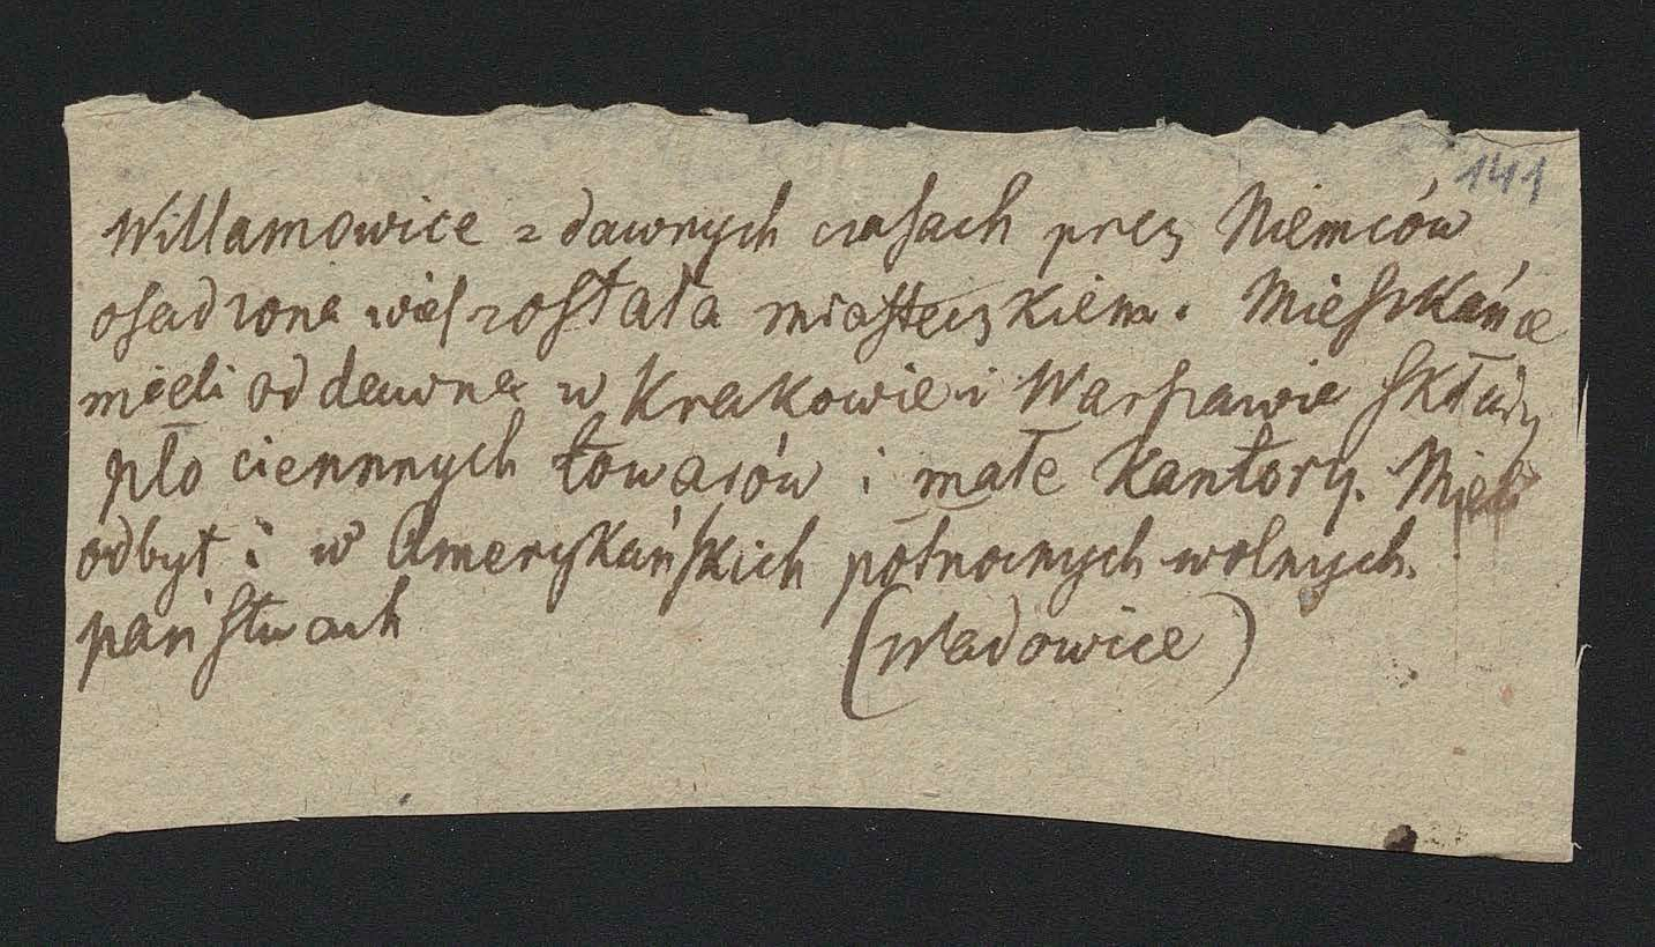 141
Willamowice z dawnych czasach prez Niemców
osadzona wieś została miasteczkiem. Mieszkańce
mieli od dawna w Krakowie i Warszawie składy
płociennnych towarów i małe kantory. Mieli
odbyt i w Amerykańskich północnych wolnych
państwach (Wadowice)